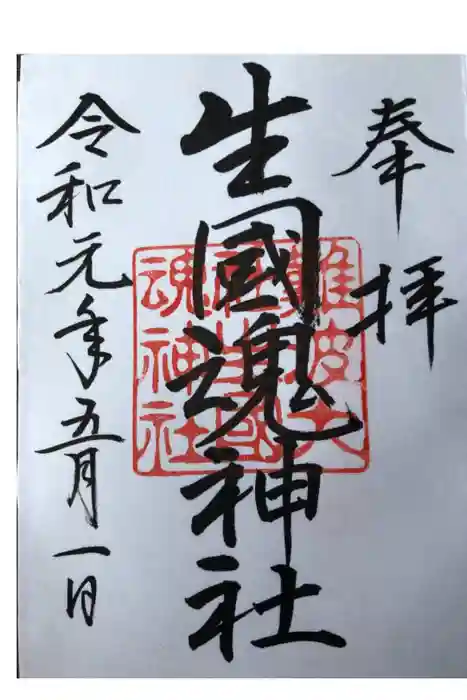 奉拝
生國魂神社
難波大社生國魂神社
令和元年五月一日